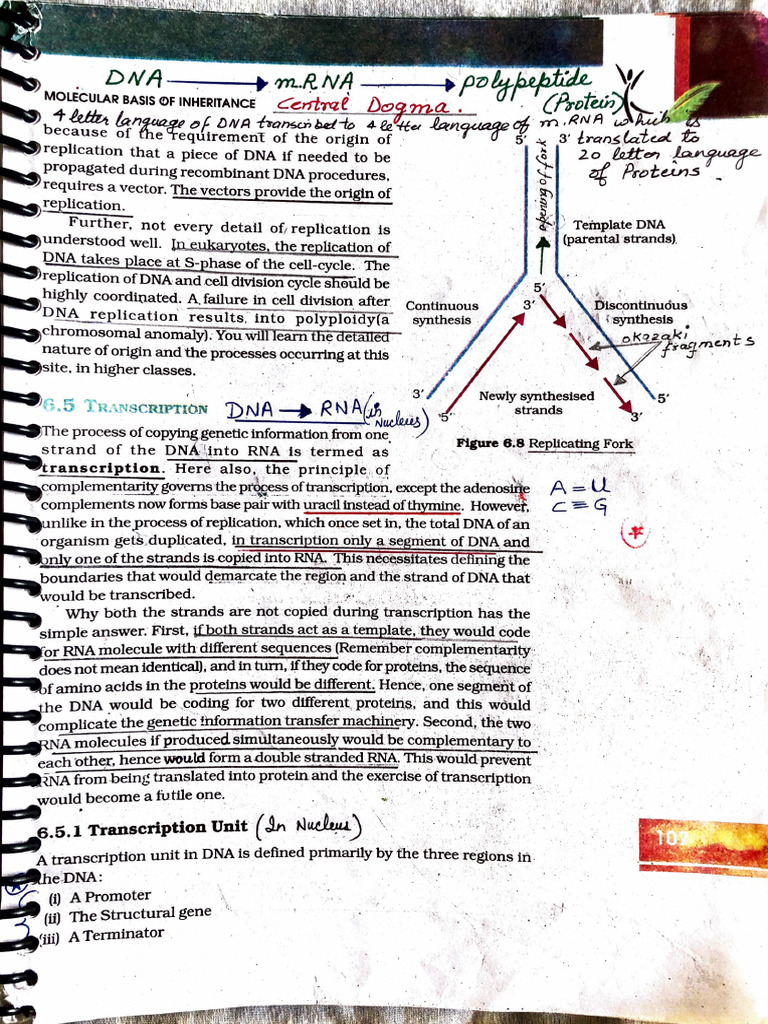 DNA → mRNA → polypeptide
(Protein)
MOLECULAR BASIS OF INHERITANCE Central Dogma.
4 letter language of DNA transcribed to 4 letter language of mRNA which is
translated to
20 letter language
of Proteins.
because of the requirement of the origin of
replication that a piece of DNA if needed to be
propagated during recombinant DNA procedures,
requires a vector. The vectors provide the origin of
replication.
Further, not every detail of replication is
understood well. In eukaryotes, the replication of
DNA takes place at S-phase of the cell-cycle. The
replication of DNA and cell division cycle should be
highly coordinated. A failure in cell division after
DNA replication results into polyploidy(a
chromosomal anomaly). You will learn the detailed
nature of origin and the processes occurring at this
site, in higher classes.
5' 3'
opening of fork
Template DNA
(parental strands)
5'
3'
Continuous
synthesis
Discontinuous
synthesis
okazaki
fragments
Newly synthesised
strands
3' 5' 3' 5'
Figure 6.8 Replicating Fork
6.5 TRANSCRIPTION DNA → RNA (in Nucleus)
The process of copying genetic information from one
strand of the DNA into RNA is termed as
transcription. Here also, the principle of
complementarity governs the process of transcription, except the adenosine
complements now forms base pair with uracil instead of thymine. However,
unlike in the process of replication, which once set in, the total DNA of an
organism gets duplicated, in transcription only a segment of DNA and
only one of the strands is copied into RNA. This necessitates defining the
boundaries that would demarcate the region and the strand of DNA that
would be transcribed.
A = U
C ≡ G
Why both the strands are not copied during transcription has the
simple answer. First, if both strands act as a template, they would code
for RNA molecule with different sequences (Remember complementarity
does not mean identical), and in turn, if they code for proteins, the sequence
of amino acids in the proteins would be different. Hence, one segment of
the DNA would be coding for two different proteins, and this would
complicate the genetic information transfer machinery. Second, the two
RNA molecules if produced simultaneously would be complementary to
each other, hence would form a double stranded RNA. This would prevent
RNA from being translated into protein and the exercise of transcription
would become a futile one.
6.5.1 Transcription Unit (In Nucleus)
107
A transcription unit in DNA is defined primarily by the three regions in
the DNA:
(i) A Promoter
(ii) The Structural gene
(iii) A Terminator